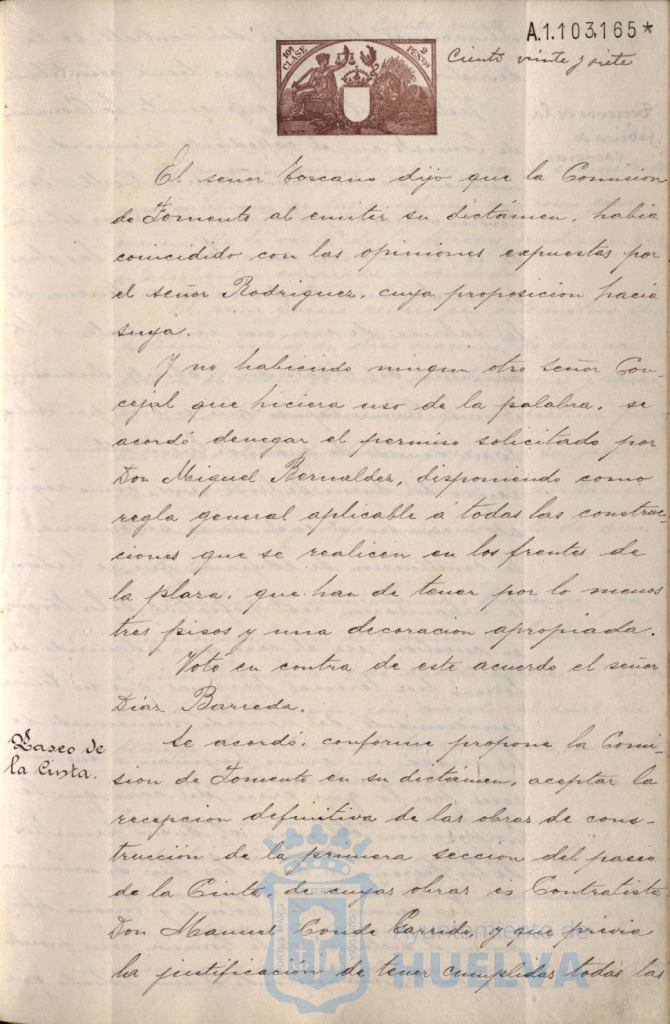 A.1.103.165*
10ª CLASE
2 PESETAS
Ciento vinte y siete
El señor Toscano dijo que la Comision
de Fomento al emitir su dictámen, habia
coincidido con las opiniones expuestas por
el señor Rodriguez, cuya proposicion hacia
suya.
Y no habiendo ningun otro señor Con-
cejal que hiciera uso de la palabra, se
acordó denegar el permiso solicitado por
Don Miguel Bernaldez, disponiendo como
regla general aplicable á todas las construc-
ciones que se realicen en los frentes de
la plaza, que han de tener por lo menos
tres pisos y una decoracion apropiada.
Votó en contra de este acuerdo el señor
Diaz Barreda.
Paseo de
la Cinta.
Se acordó, conforme propone la Comi-
sion de Fomento en su dictámen, aceptar la
recepcion definitiva de las obras de cons-
trucción de la primera seccion del paseo
de la Cinta, de cuyas obras es Contratista
Don Manuel Conde Garrido, y que prévia
la justificación de tener cumplidas todas las
Ayuntamiento de
HUELVA
PORTUS MARIS